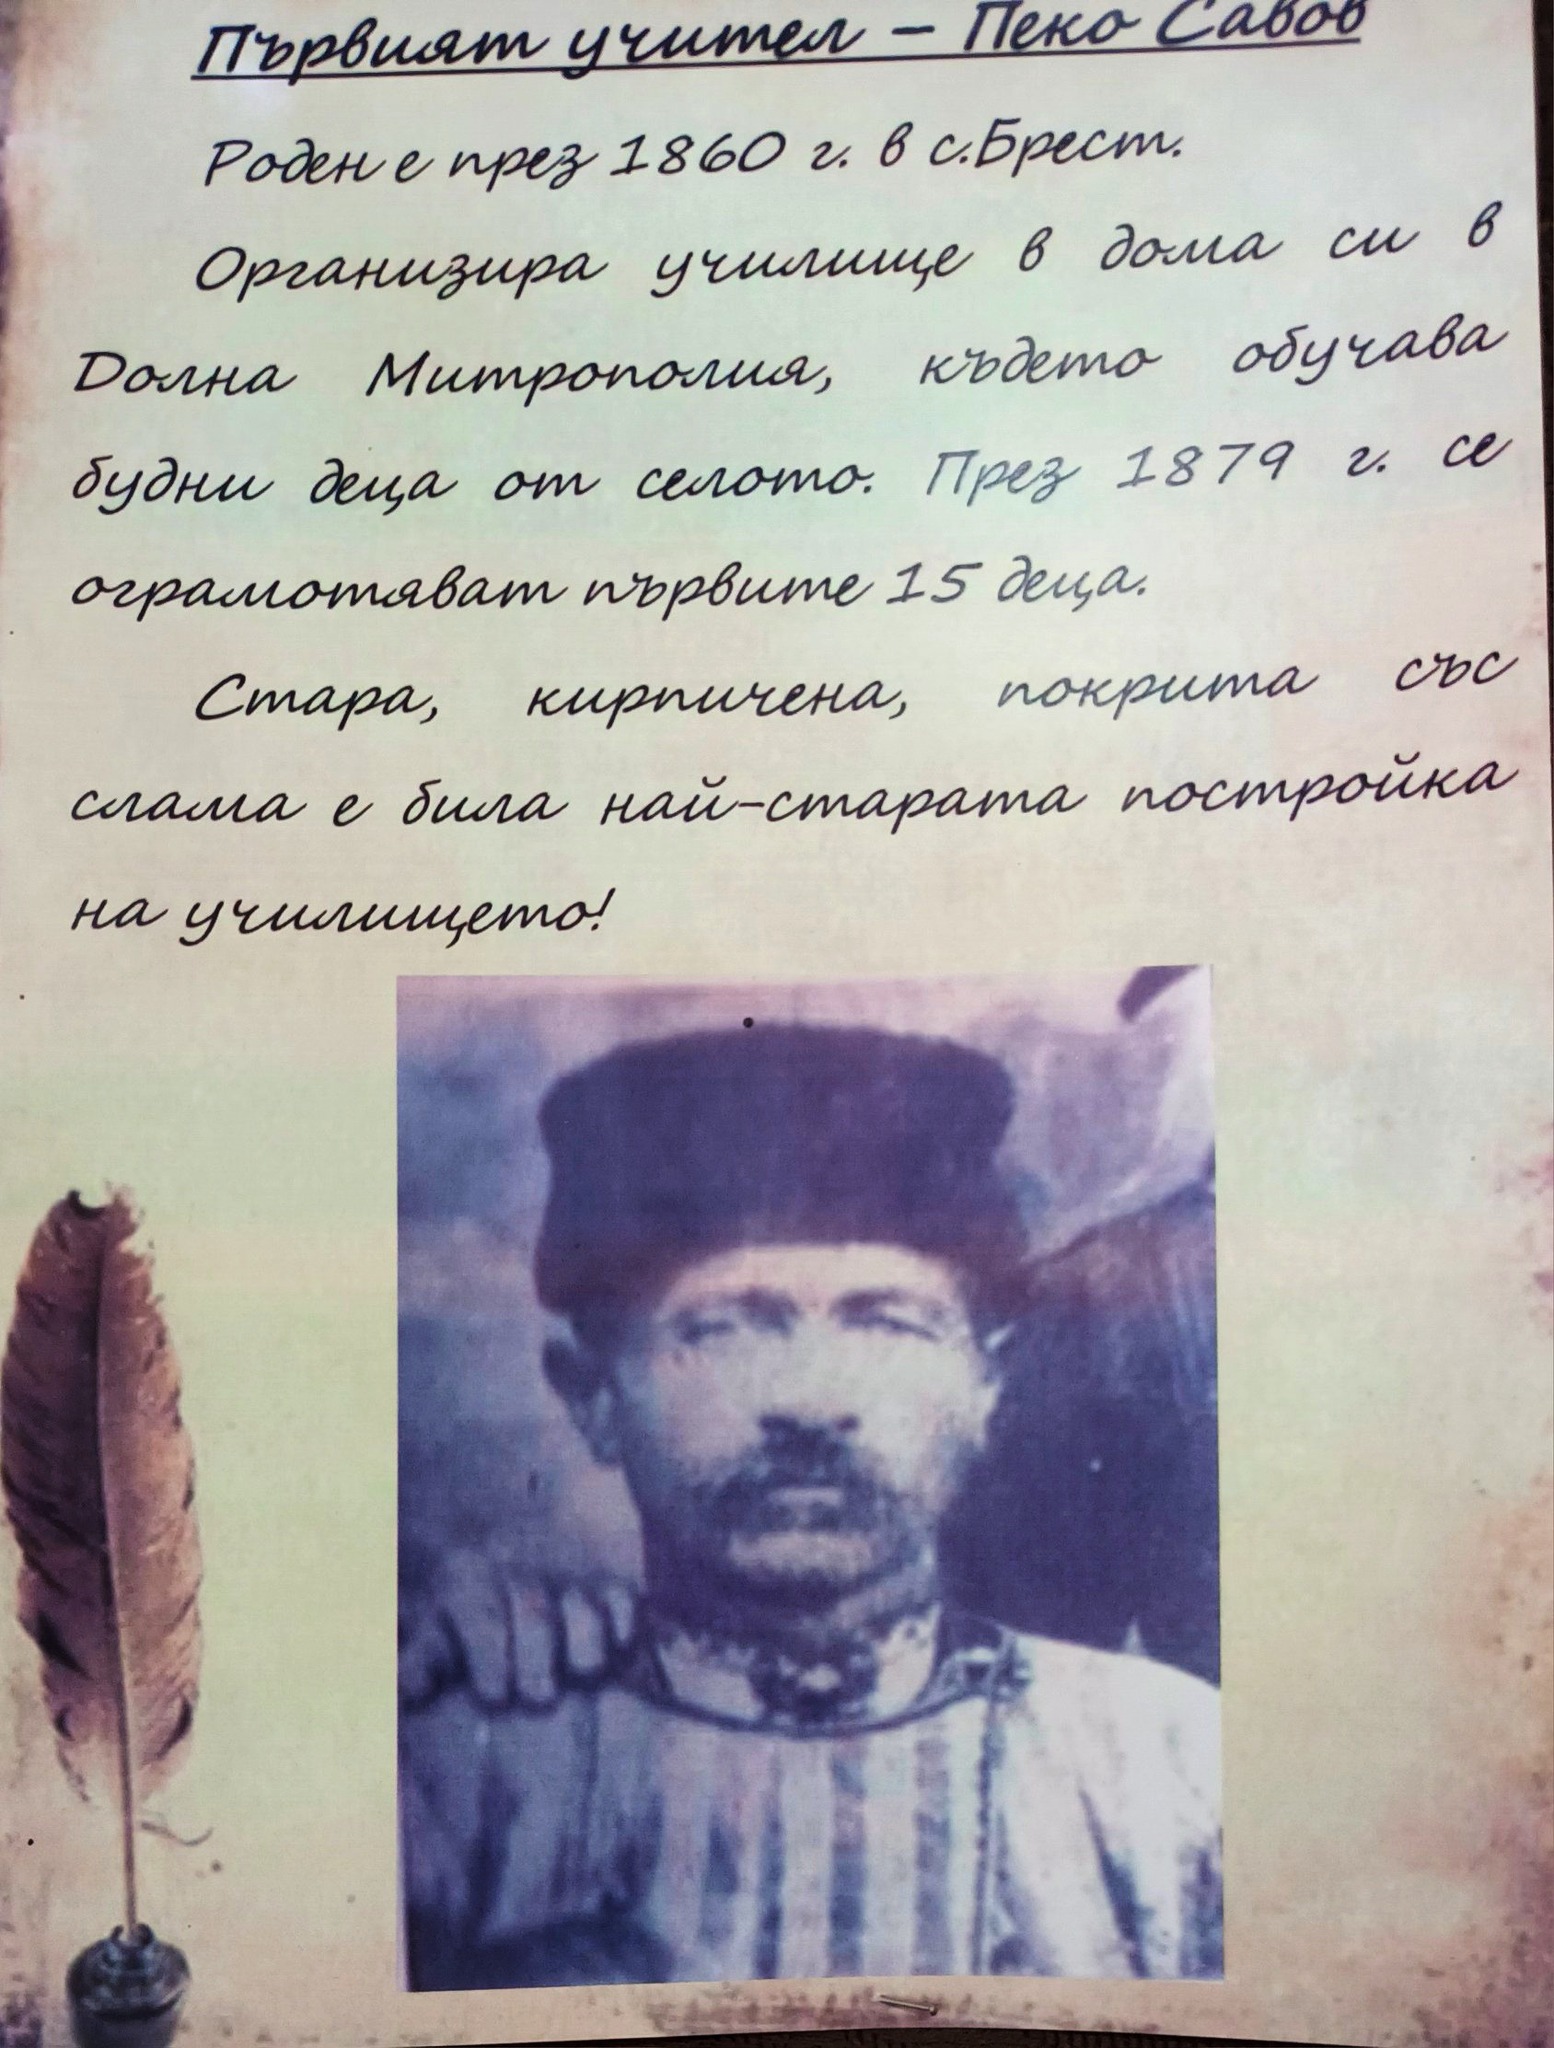 Първият учител – Пеко Савов
Роден е през 1860 г. в с.Брест.
Организира училище в дома си в
Долна Митрополия, където обучава
будни деца от селото. През 1879 г. се
ограмотяват първите 15 деца.
Стара, кирпичена, покрита със
слама е била най-старата постройка
на училището!